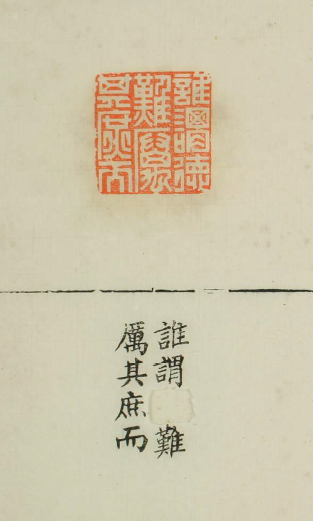 誰謂德
難厲
其庶而
誰謂難
厲其庶而